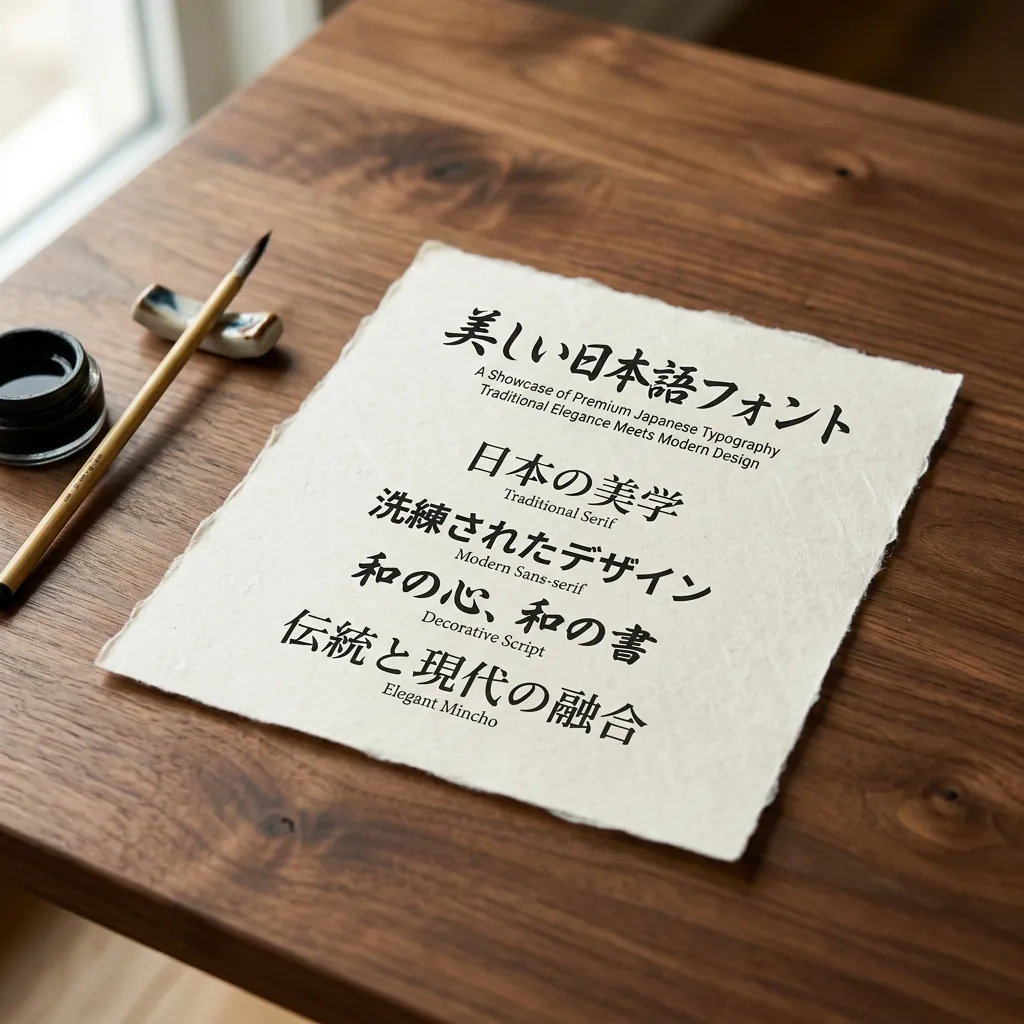 美しい日本語フォント
A Showcase of Premium Japanese Typography
Traditional Elegance Meets Modern Design
日本の美学
Traditional Serif
洗練されたデザイン
Modern Sans-serif
和の心、和の書
Decorative Script
伝統と現代の融合
Elegant Mincho